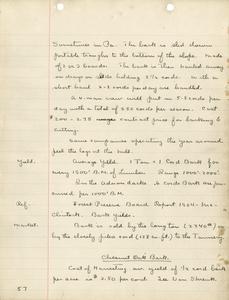 Sometimes in Pa. the bark is slid down
portable troughs to the bottom of the slope. Made
of 2 or 3 boards. The bark is then hauled away
on drays or sleds holding 3/4 cords. With a
short haul 2-3 cords per day are handled.
A 4-man crew will put in 5-6 cords per
day with a total of 350 cords per season. Cost
2.00 - 2.75 contract price for barking &
cutting.
Some companies operating the year around
peel the logs at the mill.
Yield. Average Yield. 1 Ton = 1 Cord Bark for
every 1500' B.M. of lumber Range 1000'-2000'.
In the Adirondacks ... cords Bark are
per 1000' B.M.
Ref. Forest Reserve Board Report 1904 -
Bark yields.
Market. Bark is sold by the long ton (2240#)
by the closely piled cord (128 cu. ft.) to the Tannery.
Chestnut Oak Bark.
Cost of Harvesting an yield of 1/2 cord bark
per acre $2.50 per cord. See Von Schrenk
57